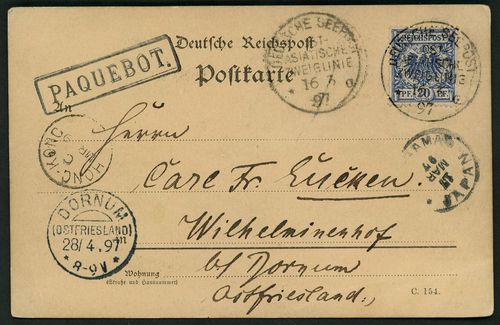 Deutsche Reichspost
Postkarte
PAQUEBOT.
DEUTSCHE SEEPOST
OST-
ASIATISCHE
ZWEIGLINIE
16 3
97
a
REICHSPOST
20 PF
DEUTSCHE SEEPOST
OST
ZWEIGLINIE
a
97
An
HONG-KONG
C
JAPAN
MAR
97
Herrn
Carl Fr. Lucken.
in
Wilhelminenhof
b/ Dornum
Ostfriesland.
DORNUM
(OSTFRIESLAND)
28/4.97
* 8-9V *
Wohnung
(Straße und Hausnummer)
C. 154.